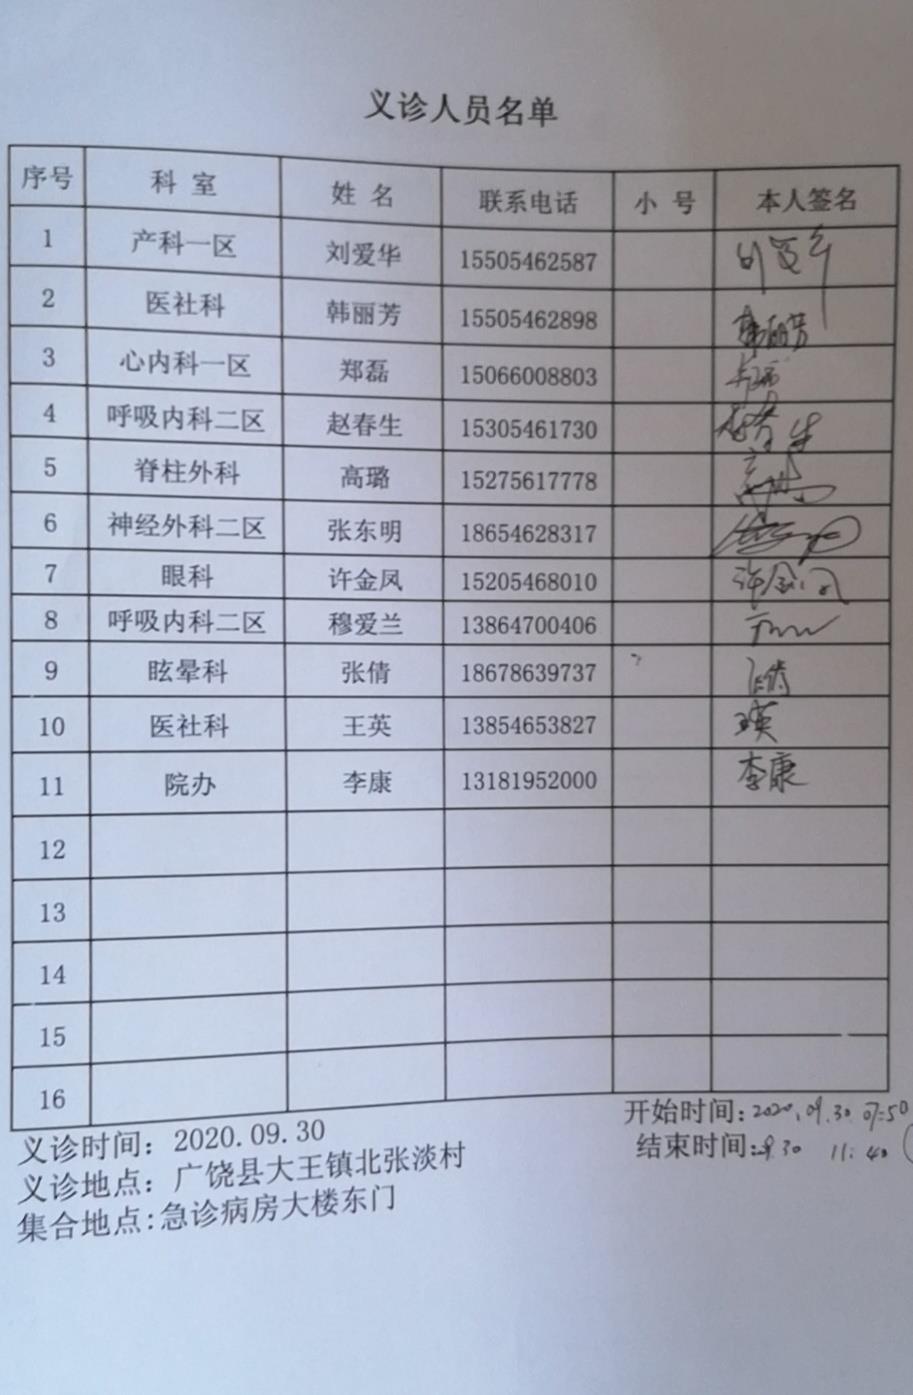 义诊人员名单
序号 科 室 姓 名 联系电话 小 号 本人签名
1 产科一区 刘爱华 15505462587
2 医社科 韩丽芳 15505462898 韩丽芳
3 心内科一区 郑磊 15066008803
4 呼吸内科二区 赵春生 15305461730 赵春生
5 脊柱外科 高璐 15275617778 高璐
6 神经外科二区 张东明 18654628317
7 眼科 许金凤 15205468010 许金凤
8 呼吸内科二区 穆爱兰 13864700406
9 眩晕科 张倩 18678639737 张倩
10 医社科 王英 13854653827 王英
11 院办 李康 13181952000 李康
12
13
14
15
16
义诊时间：2020.09.30 开始时间:2020.09.30 07:50
义诊地点：广饶县大王镇北张淡村 结束时间:9.30 11:40
集合地点:急诊病房大楼东门